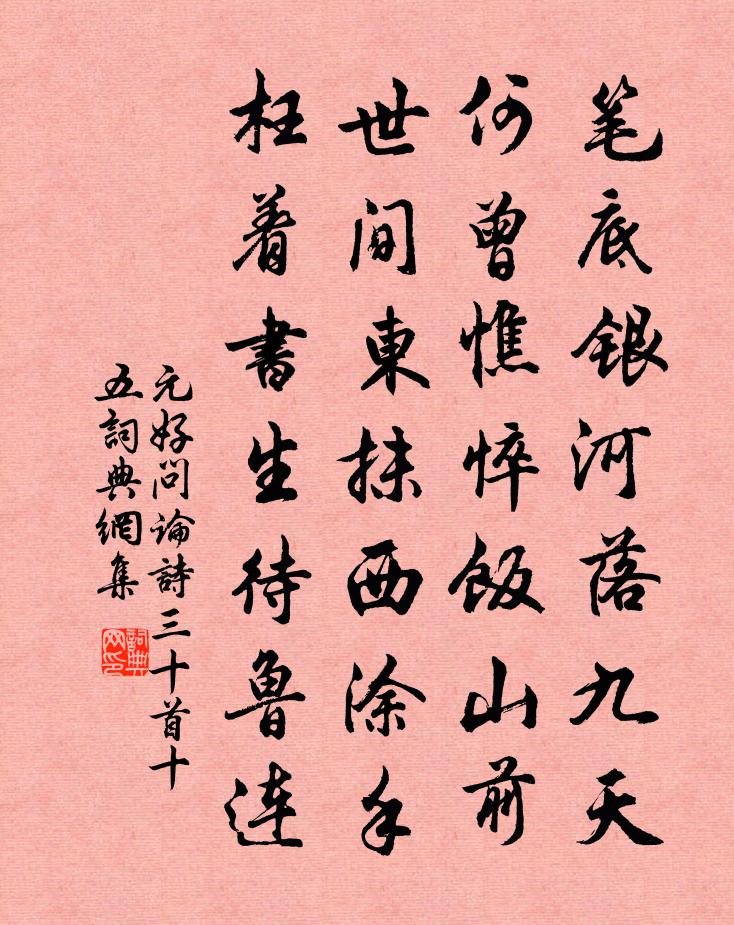 笔底银河落九天
何曾憔悴饭山前
世间東抹西涂手
枉着書生待鲁连
元好问论詩三十首十
五詞典網集
詞典网印